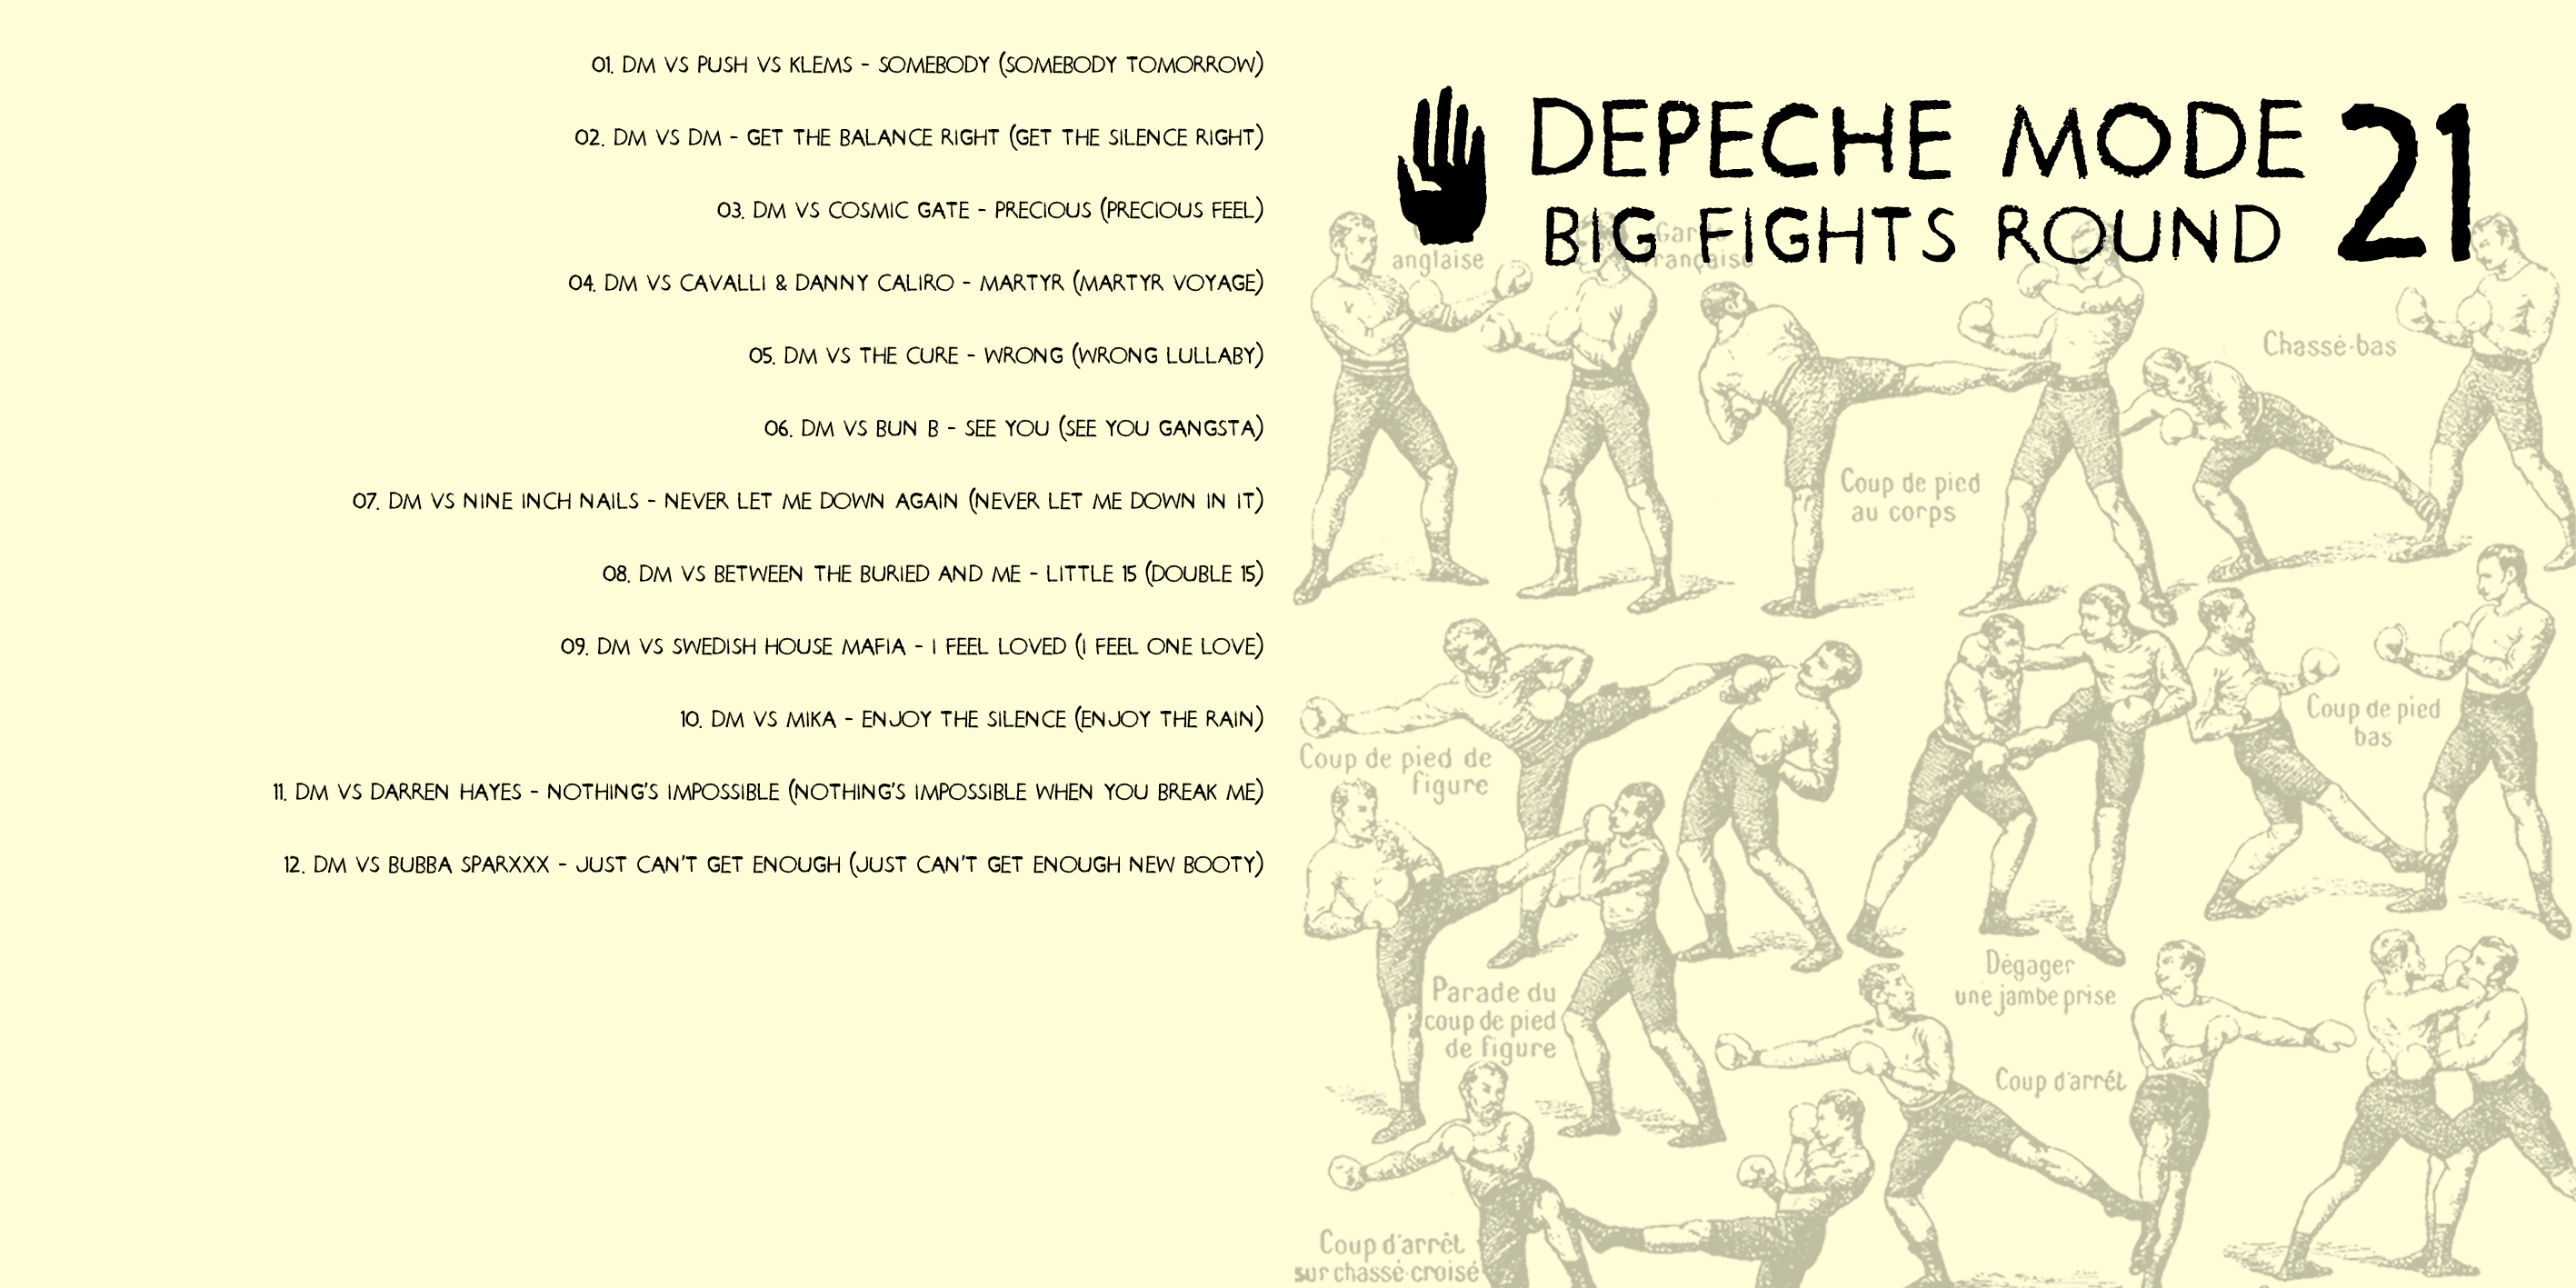 01. DM VS PUSH VS KLEMS - SOMEBODY (SOMEBODY TOMORROW)
02. DM VS DM - GET THE BALANCE RIGHT (GET THE SILENCE RIGHT)
03. DM VS COSMIC GATE - PRECIOUS (PRECIOUS FEEL)
04. DM VS CAVALLI & DANNY CALIRO - MARTYR (MARTYR VOYAGE)
05. DM VS THE CURE - WRONG (WRONG LULLABY)
06. DM VS BUN B - SEE YOU (SEE YOU GANGSTA)
07. DM VS NINE INCH NAILS - NEVER LET ME DOWN AGAIN (NEVER LET ME DOWN IN IT)
08. DM VS BETWEEN THE BURIED AND ME - LITTLE 15 (DOUBLE 15)
09. DM VS SWEDISH HOUSE MAFIA - I FEEL LOVED (I FEEL ONE LOVE)
10. DM VS MIKA - ENJOY THE SILENCE (ENJOY THE RAIN)
11. DM VS DARREN HAYES - NOTHING'S IMPOSSIBLE (NOTHING'S IMPOSSIBLE WHEN YOU BREAK ME)
12. DM VS BUBBA SPARXXX - JUST CAN'T GET ENOUGH (JUST CAN'T GET ENOUGH NEW BOOTY)
DEPECHE MODE 21
BIG FIGHTS ROUND
anglaise
Garde
française
Chassé-bas
Coup de pied
au corps
Coup de pied
bas
Coup de pied de
figure
Parade du
coup de pied
de figure
Dégager
une jambe prise
Coup d'arrêt
Coup d'arrêt
sur chassé-croisé